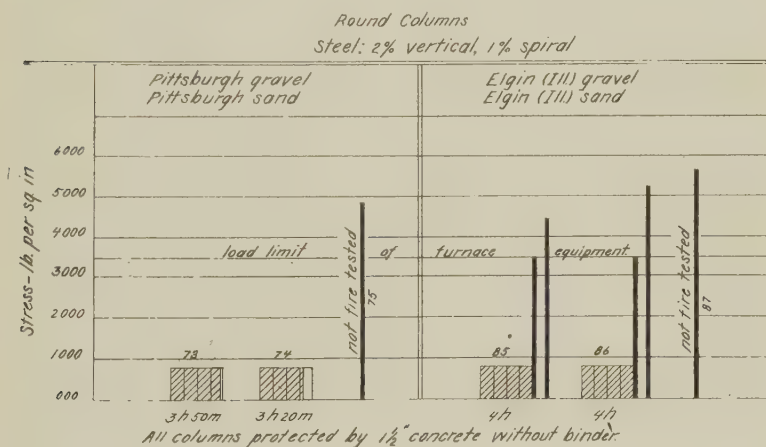 Round Columns
Steel: 2% vertical, 1% spiral
Pittsburgh gravel
Pittsburgh sand
Elgin (Ill.) gravel
Elgin (Ill.) sand
Stress-lb. per sq in
6000
5000
4000
3000
2000
1000
000
load limit of furnace equipment
73
74
not fire tested
75
85
86
not fire tested
87
3h50m
3h20m
4h
4h
All columns protected by 1½" concrete without binder.